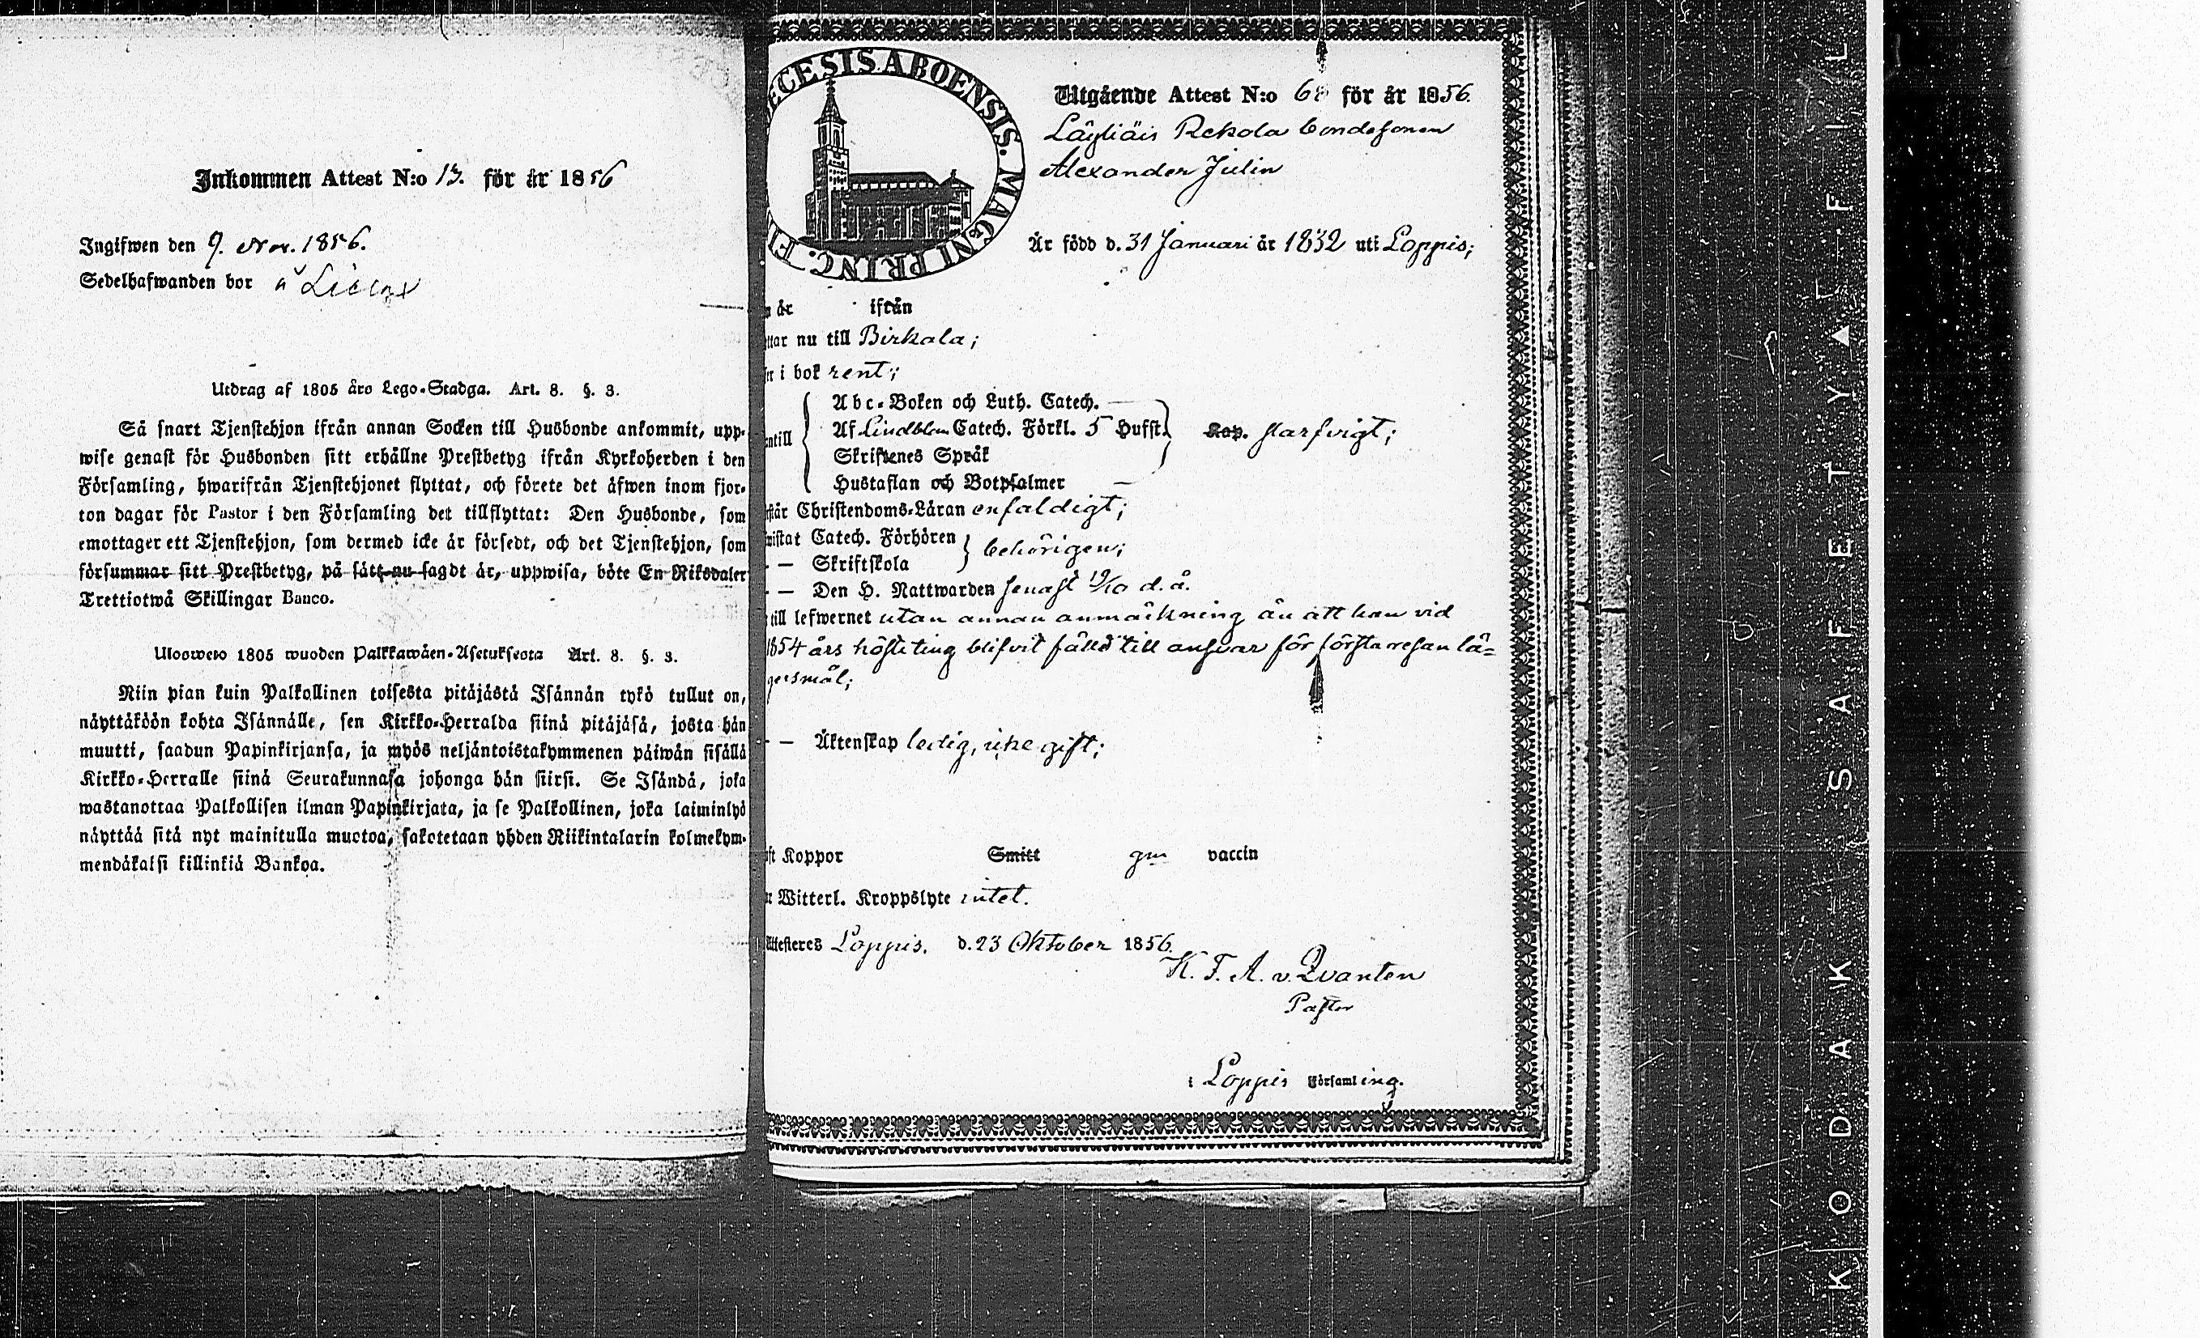 Inkommen Attest N:o 13. för år 1856
Ingifwen den 9. Nov. 1856.
Sedelhafwanden bor å
Utdrag af 1805 års Lego-Stadga. Art. 8. §. 3.
Så snart Tjenstehjon ifrån annan Socken till Husbonde ankommit, upp-
wise genast för Husbonden sitt erhållne Prestbetyg ifrån Kyrkoherden i den
Församling, hwarifrån Tjenstehjonet flyttat, och förete det äfwen inom fjor-
ton dagar för Pastor i den Församling det tillflyttat: Den Husbonde, som
emottager ett Tjenstehjon, som dermed icke är försedt, och det Tjenstehjon, som
försummar sitt Prestbetyg, på sätt nu sagdt är, uppwisa, böte En Riksdaler
Trettiotwå Skillingar Banco.
Uloswето 1805 wuoden Palkkawäen-Asetuksesta Art. 8. §. 3.
Niin pian kuin Palkollinen toisesta pitäjästä Isännän tykö tullut on,
näyttäköön kohta Isännälle, sen Kirkko-Herralda siinä pitäjäsä, josta hän
muutti, saadun Papinkirjansa, ja myös neljäntoistakymmenen päiwän sisällä
Kirkko-Herralle siinä Seurakunnasa johonga hän siirsi. Se Isändä, joka
wastanottaa Palkollisen ilman Papinkirjata, ja se Palkollinen, joka laiminlyö
näyttää sitä nyt mainitulla muotoa, sakotetaan yhden Riikintalarin kolmekym-
mendäkaksi killinkiä Bankoa.
ECESIS ABOENSIS. MAGNI PRINC. F
Utgående Attest N:o 68 för år 1856.
Läyliäis Rekola bondesonen
Alexander Julin
Är född d. 31 Januari år 1832 uti Loppis;
år ifrån
ttar nu till Birkala;
i bok rent;
Abc-Boken och Luth. Catech.
ntill Af Lindblom Catech. Förkl. 5 Hufst. Kap. starfvigt;
Skriftenes Språk
Hustaflan och Botpsalmer
står Christendoms-Läran enfaldigt;
wistat Catech. Förhören behörigen;
— Skriftskola
— Den H. Nattwarden senast 19/10 d. å.
till lefwernet utan annan anmärkning än att han vid
1854 års höste ting blifvit fälld till ansvar för första resan lä-
gersmål;
— Äktenskap ledig, icke gift;
ft Koppor Smitt gm vaccin
Witterl. Kroppslyte intet.
Attesteres Loppis. d. 23 Oktober 1856.
K. F. A. v. Qvanten
Pastor
i Loppis Församling.
KODAK SAFETY FIL